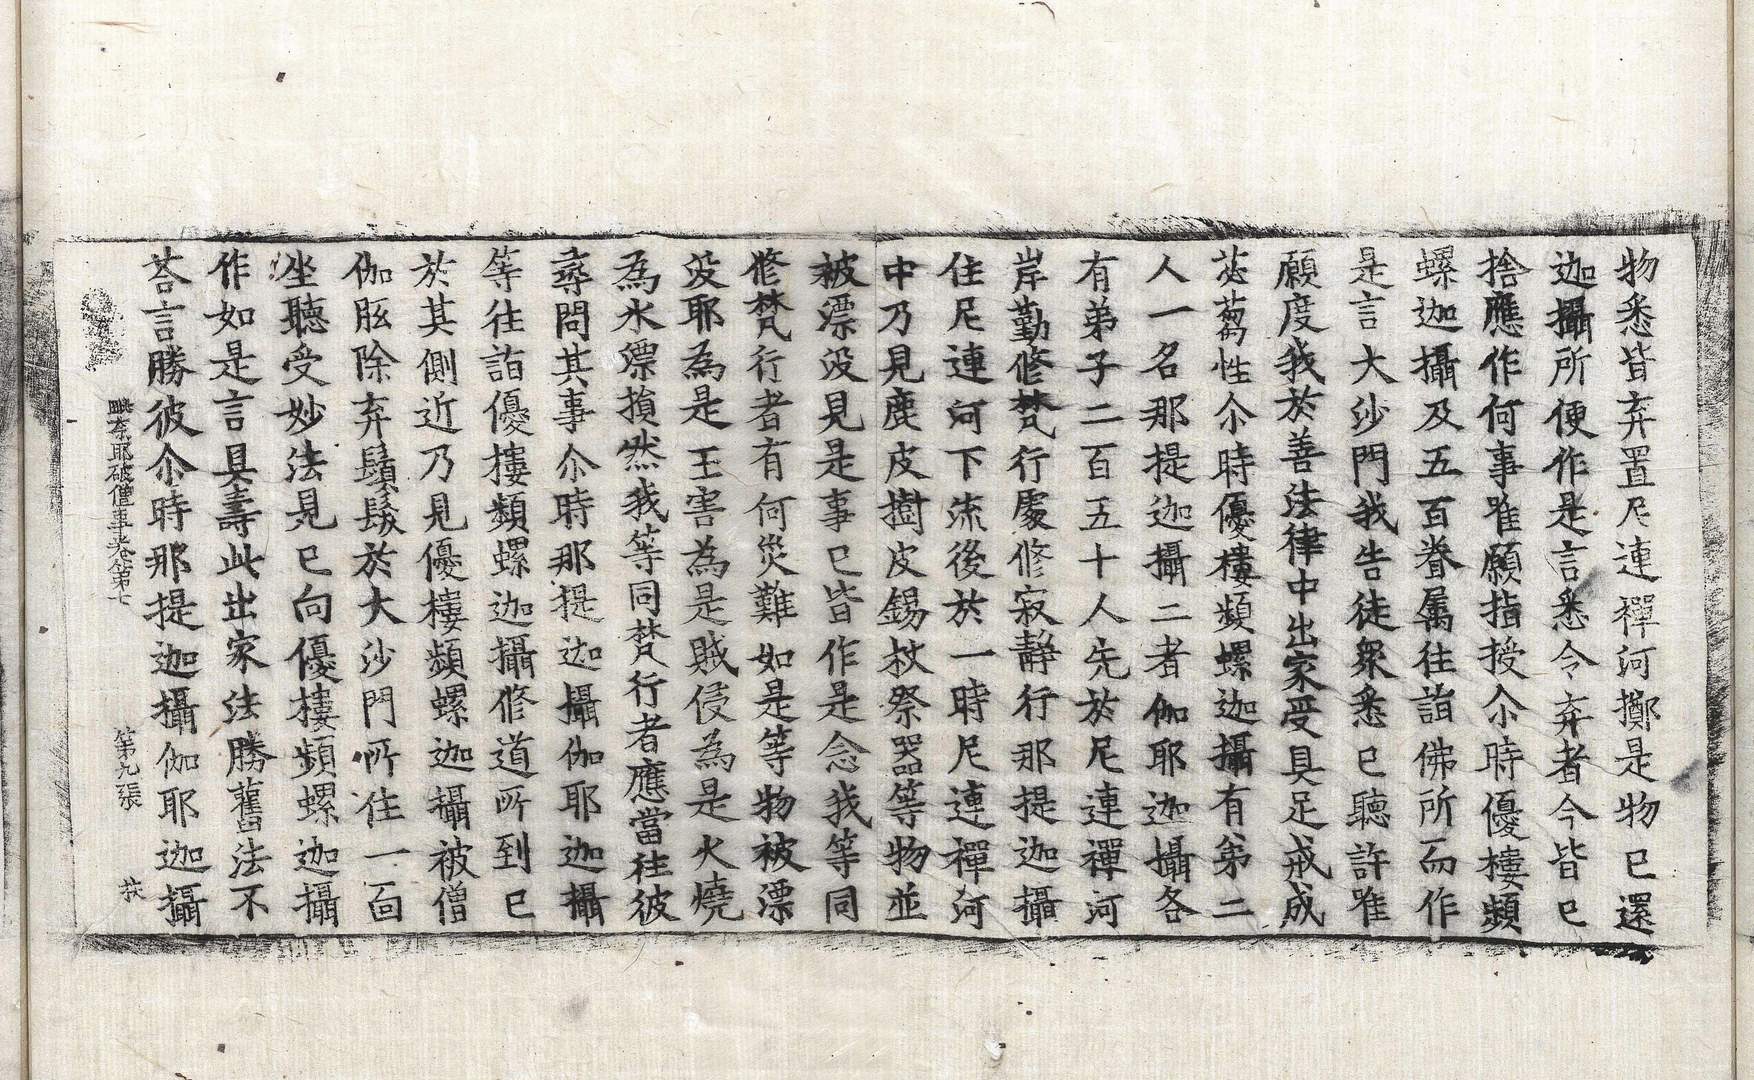 物悉皆弃置尼連禪河擲是物已還
迦攝所便作是言悉令弃者今皆已
捨應作何事唯願指授尒時優樓頻
螺迦攝及五百眷属往詣佛所而作
是言大沙門我告徒衆悉已聽許唯
願度我於善法律中出家受具足戒成
苾蒭性尒時優樓頻螺迦攝有弟二
人一名那提迦攝二者伽耶迦攝各
有弟子二百五十人先於尼連禪河
岸勤修梵行處修寂静行那提迦攝
住尼連河下流後於一時尼連禪河
中乃見鹿皮樹皮錫杖祭器等物並
被漂没見是事已皆作是念我等同
修梵行者有何災難如是等物被漂
没耶為是王害為是賊侵為是火燒
為水漂損然我等同梵行者應當往彼
尋問其事尒時那提迦攝伽耶迦攝
等往詣優樓頻螺迦攝修道所到已
於其側近乃見優樓頻螺迦攝被僧
伽胝除弃鬚髮於大沙門所住一面
坐聽受妙法見已向優樓頻螺迦攝
作如是言具壽此出家法勝舊法不
荅言勝彼尒時那提迦攝伽耶迦攝
毗奈耶破僧事卷第七 第九張